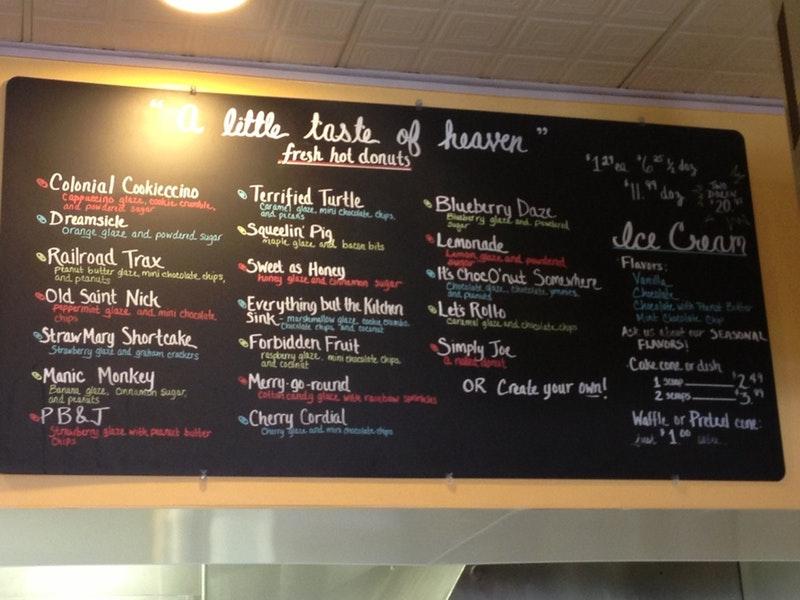 "a little taste of heaven"
fresh hot donuts
Colonial Cookieccino
Cappuccino glaze, cookie crumble,
and powdered sugar
Dreamsicle
Orange glaze and powdered sugar
Railroad Trax
Peanut butter glaze, mini chocolate chips,
and peanuts
Old Saint Nick
peppermint glaze and mini chocolate
chips
StrawMary Shortcake
Strawberry glaze and graham crackers
Manic Monkey
Banana glaze, cinnamon sugar,
and peanuts
PB&J
Strawberry glaze with peanut butter
chips
Terrified Turtle
Caramel glaze, mini chocolate chips,
and pecans
Squeelin' Pig
maple glaze and bacon bits
Sweet as Honey
honey glaze and cinnamon sugar
Everything but the Kitchen
Sink - marshmallow glaze, cookie crumbs,
chocolate chips, and coconut
Forbidden Fruit
raspberry glaze, mini chocolate chips,
and coconut
Merry-go-round
cotton candy glaze with rainbow sprinkles
Cherry Cordial
Cherry glaze and mini chocolate chips
Blueberry Daze
Blueberry glaze and powdered
sugar
Lemonade
Lemon glaze and powdered
sugar
It's ChocO'nut Somewhere
Chocolate glaze, chocolate jimmies,
and peanuts
Let's Rollo
Caramel glaze and chocolate chips
Simply Joe
a naked donut
OR Create your own!
$1.29 ea $6.25 ½ doz
$11.99 doz
TWO
DOZEN
$20
Ice Cream
Flavors:
Vanilla
Chocolate
Chocolate with Peanut Butter
Mint Chocolate Chip
Ask us about our SEASONAL
FLAVORS!
Cake cone or dish
1 scoop $2.49
2 scoops $3.99
Waffle or Pretzel cone:
just $1.00